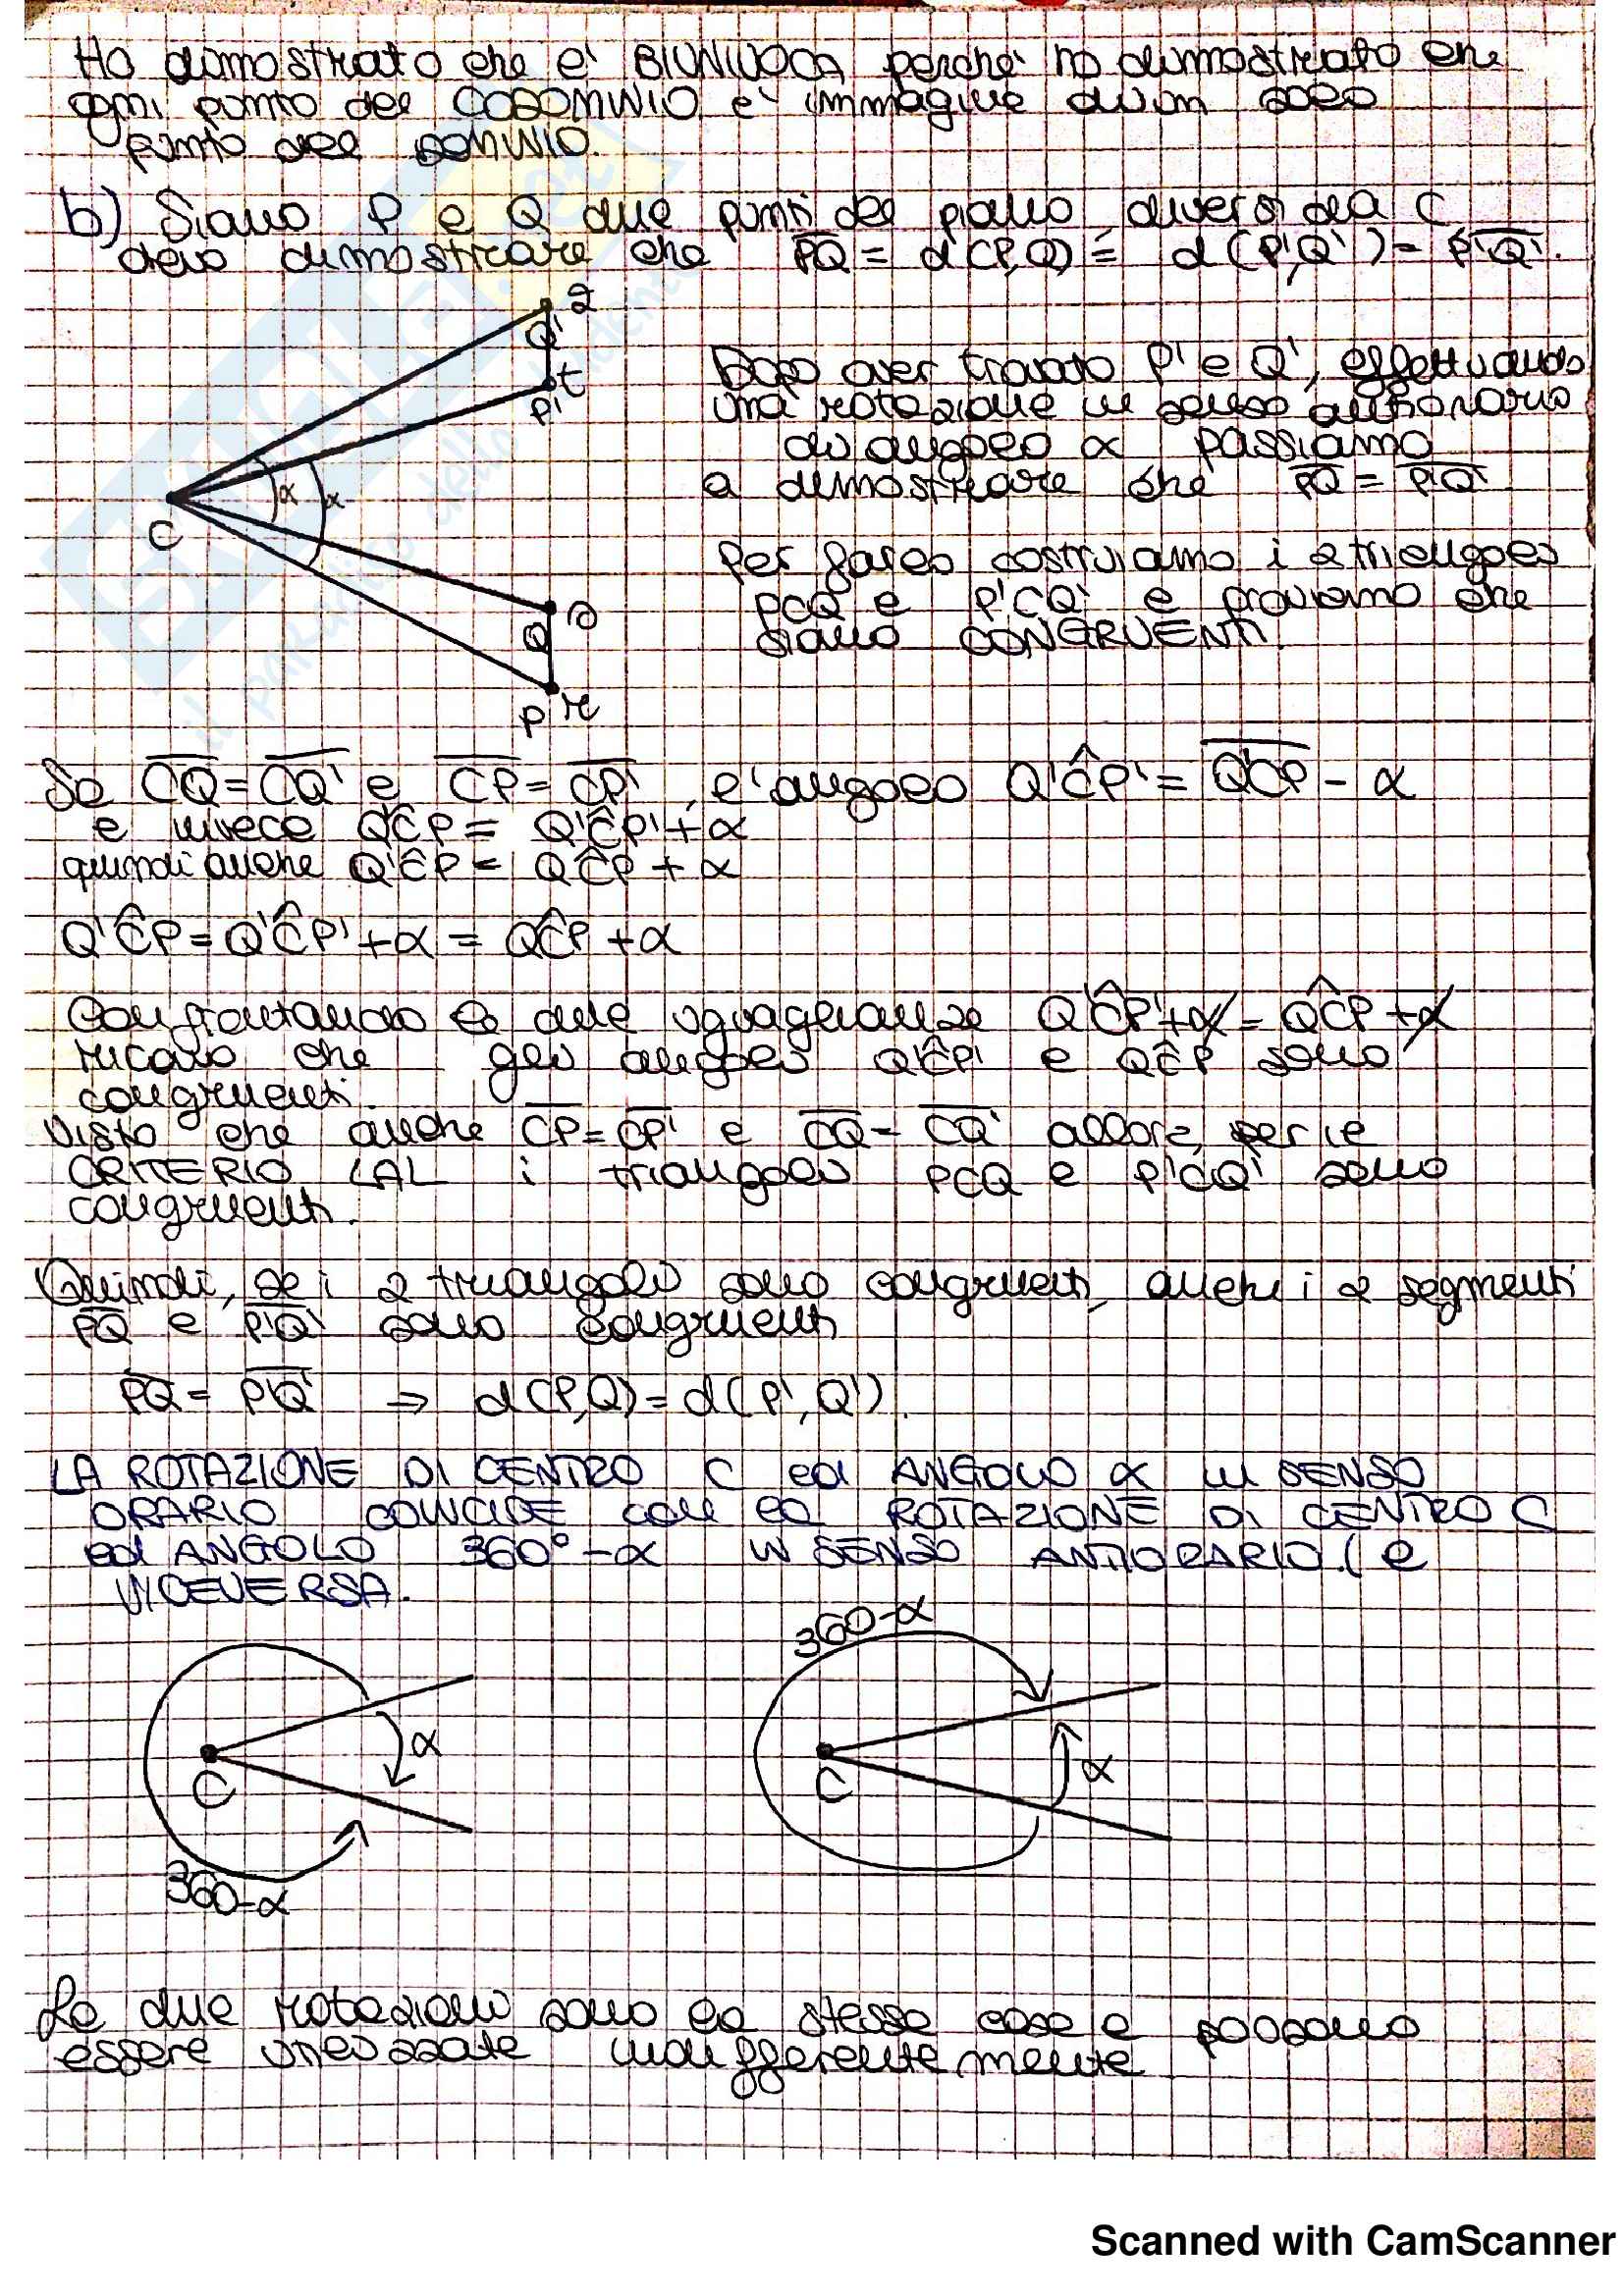 Ho dimostrato che è BIUNIVOCA perché ho dimostrato che
ogni punto del CODOMINIO è immagine di un solo
punto del DOMINIO.
b) Siano P e Q due punti del piano, diversi da C
devo dimostrare che PQ = d(P,Q) = d(P',Q') = P'Q'.
Q'
t
P'
α α
C
s
Q
P r
Dopo aver trovato P' e Q', effettuando
una rotazione in senso antiorario
di angolo α passiamo
a dimostrare che PQ = P'Q'
Per farlo costruiamo i 2 triangoli
PCQ e P'CQ' e proviamo che
siano CONGRUENTI.
Se CQ = CQ' e CP = CP', l'angolo Q'ĈP' = Q'CP - α
e invece Q'ĈP = Q'ĈP' + α
quindi anche Q'ĈP = QĈP + α
Q'ĈP = Q'ĈP' + α = QĈP + α
Confrontando le due uguaglianze Q'ĈP' + α = QĈP + α
ricavo che gli angoli Q'ĈP' e QĈP sono
congruenti.
Visto che anche CP = CP' e CQ = CQ' allora, per il
CRITERIO LAL i triangoli PCQ e P'CQ' sono
congruenti.
Quindi, se i 2 triangoli sono congruenti, anche i 2 segmenti
PQ e P'Q' sono congruenti
PQ = P'Q' ⇒ d(P,Q) = d(P',Q').
LA ROTAZIONE DI CENTRO C ed ANGOLO α in SENSO
ORARIO COINCIDE con la ROTAZIONE DI CENTRO C
ed ANGOLO 360° - α IN SENSO ANTIORARIO. (e
VICEVERSA.
360-α
α
C
360-α
C
α
Le due rotazioni sono la stessa cosa e possono
essere utilizzate indifferentemente
Scanned with CamScanner